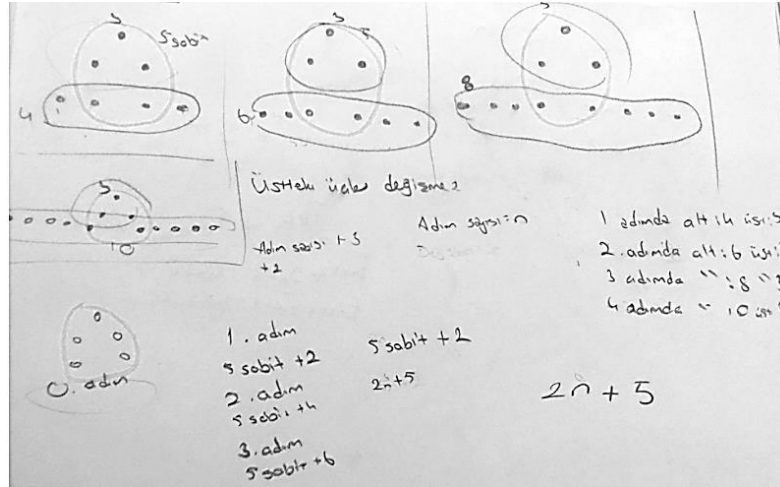 3
5 sabit
4
3
5
6
3
8
3
10
Üstteki üçler değişmez
Adım sayısı + 3
+2
Adım sayısı = n
1 adımda alt : 4 üst : 3
2. adımda alt : 6 üst :
3 adımda " : 8 " 3
4 adımda " 10 üst
0. adım
1. adım
5 sabit +2
2. adım
5 sabit +4
3. adım
5 sabit +6
5 sabit +2
2n+5
2n + 5